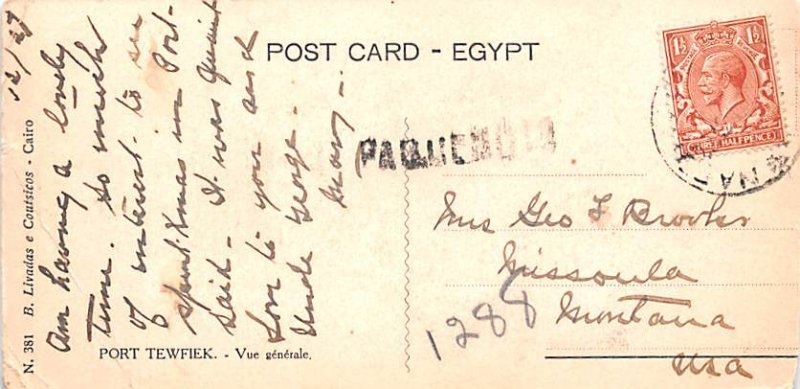 POST CARD - EGYPT
12/27
Am having a lovely
time. So much
of interest to see
spent Xmas in Port-
Said - It was quaint
Love to you and
Uncle George -
Mary -
PAQUEBOT
1½ 1½
THREE HALFPENCE
Mrs Geo F Brooks
Missoula
Montana
USA
1288
PORT TEWFIEK. - Vue générale.
N. 381 B. Livadas e Coutsicos - Cairo